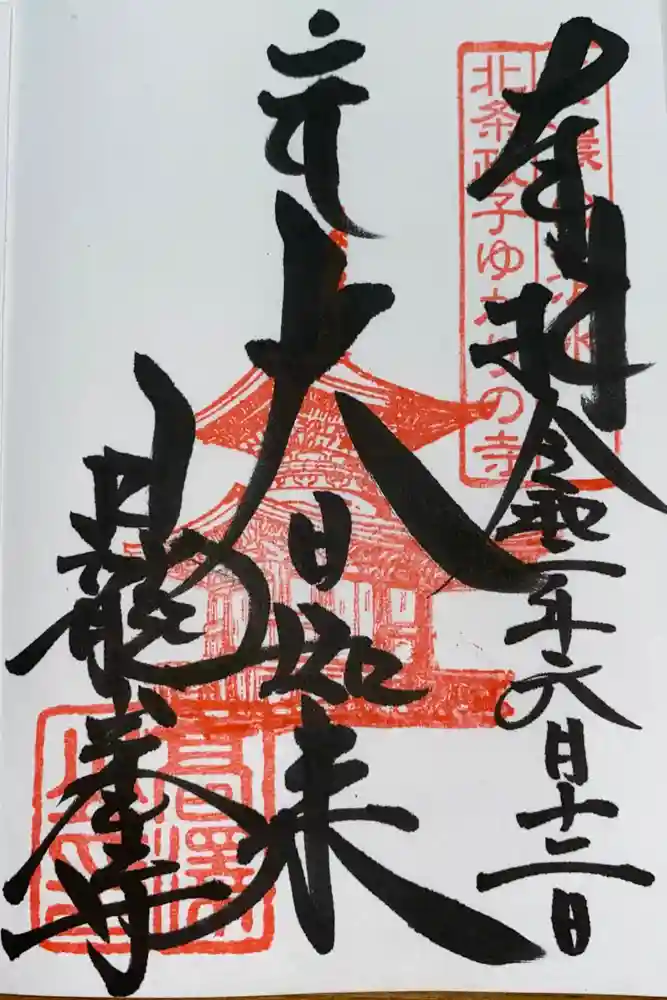 奉拝
令和二年六月十二日
北条政子ゆかりの寺
大日如来
日龍峯寺
高澤